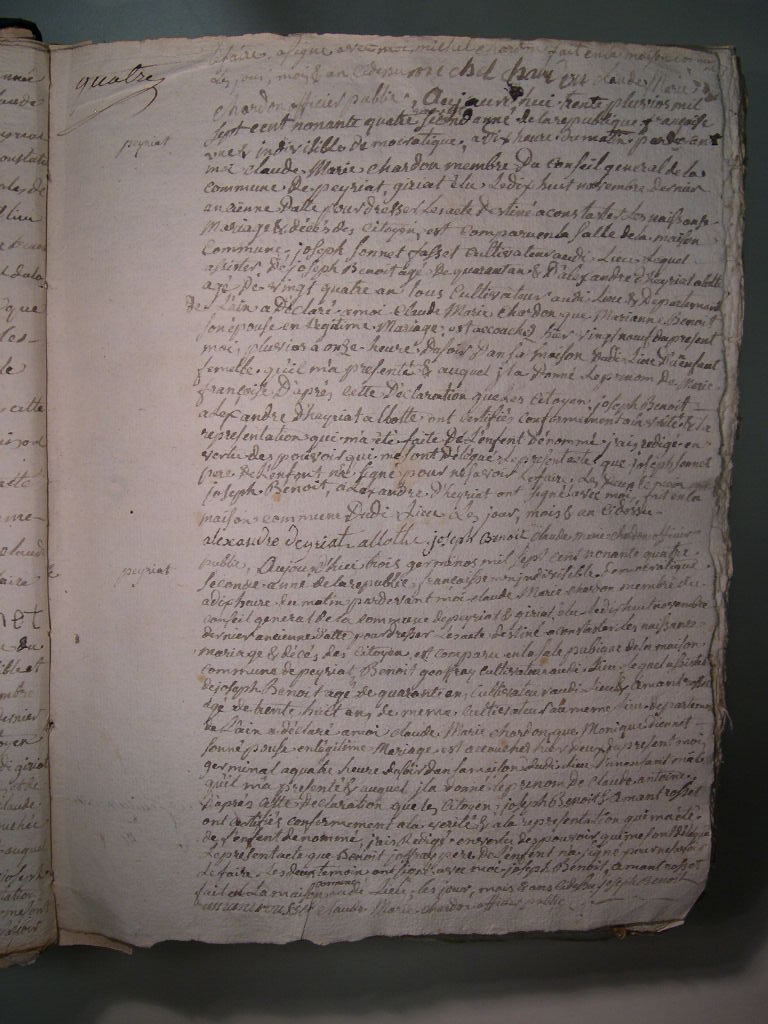 quatre
claire, a signé avec moi michel chardon fait en la maison commune
Les jour, mois & an cidessus michel chardon claude Marie
chardon officier public, Aujaurdhuei trante pluvios mil
sept cent nonante quatre second anné de la republique francaise
une & indivisible democratique, a dix heure du matin pardevant
moi claude Marie chardon membre Du Conseil general de la
commune De peyriat, giriat élu Le dix huit novembre dernier
peyriat
encienne Datte pour dresser Les acte destiné a constater Les naissans
Mariage & décés des Citoyen, est Comparu en la Salle de la maison
Commune, joseph sonnet fasset Cultivateur audi Lieu Lequel
assister De joseph Benoit agé De quarantan & D'alexandre d'heyriat allotte
agé De vingt quatre an tous Cultivateur audi Lieu & Departement
De L'ain a Déclaré a moi Claude Marie chardon que Marianne Benoit
son épouse en Legitime Mariage est accouché hier vingt neuf du present
moi pluvios a onze heure Du soir Dans sa maison Dudi Lieu D'un enfant
femelle quil m'a presenté & auquel jl a Donné Le prenom de Marie
françoise D'aprés Cette Déclaration que Les Citoyen joseph Benoit
alexandre d'heyriat allotte ont certifiés conformement a la verité & la
representation qui m'a été faite De L'enfent denommé, jais redigé en
vertu des pouvoir qui me sont délégués Le present acte que joseph sonnet
pere De L'enfant n'a signé pour ne savoir Le faire, Les Deux temoin
joseph Benoit, alexandre D'heyriat ont signé avec moi, fait en la
maison commune Dudi Lieu Les jour, mois & an cidessu
alexandre deyriat allothe joseph Benoit claude marie chardon officier
public, Aujourd'huei trois germinos mil sept cent nonante quatre
peyriat
seconde anne de la republic francaise une indivisible Democratique
a dix heure du matin pardevant moi claude Marie chardon membre du
conseil general de la commune de peyriat & giriat élu Le dix huit novembre
dernier ancienne datte pour dresser Les acte destiné a constater Les naissanse
mariage & décés, des Citoyen, est comparu en la sale publique de la maison
commune de peyriat, Benoit goeffray cultivateur audi Lieu Lequel assisté
de joseph Benoit agé de quarantian, Cultivateur audi Lieu & amant rosset
agé de trente huit ans, de meme, Cultivateur au meme Lieu, departement
de L'ain a déclaré a moi claude Marie chardon que Monique sonnet
sonné pouse en legitime Mariage est accouchée hier deux du present moi
germinal a quatre heure de soir dans sa maison dudi Lieu d'un enfant mâle
qu'il m'a presenté & auquel jl a donné Le prenom de Claude antoine
D'aprés Cette declaration que Le Citoyen joseph Benoit & amant rosset
ont certifiés conformement a la verité & a la representation qui m'a été
de L'enfent denommé, jais Redigé en vertu des pouvoir qui me sont délégué
Le present acte que Benoit joffray pere De L'enfent n'a signé pour ne savoir
Le faire Les deux temoin ont signé avec moi joseph Benoit, amant rosset
fait en La maison commune dudi Lieu, Les jour, mois & ans cidessu joseph Benoit
amant rosset claude Marie chardon officier public